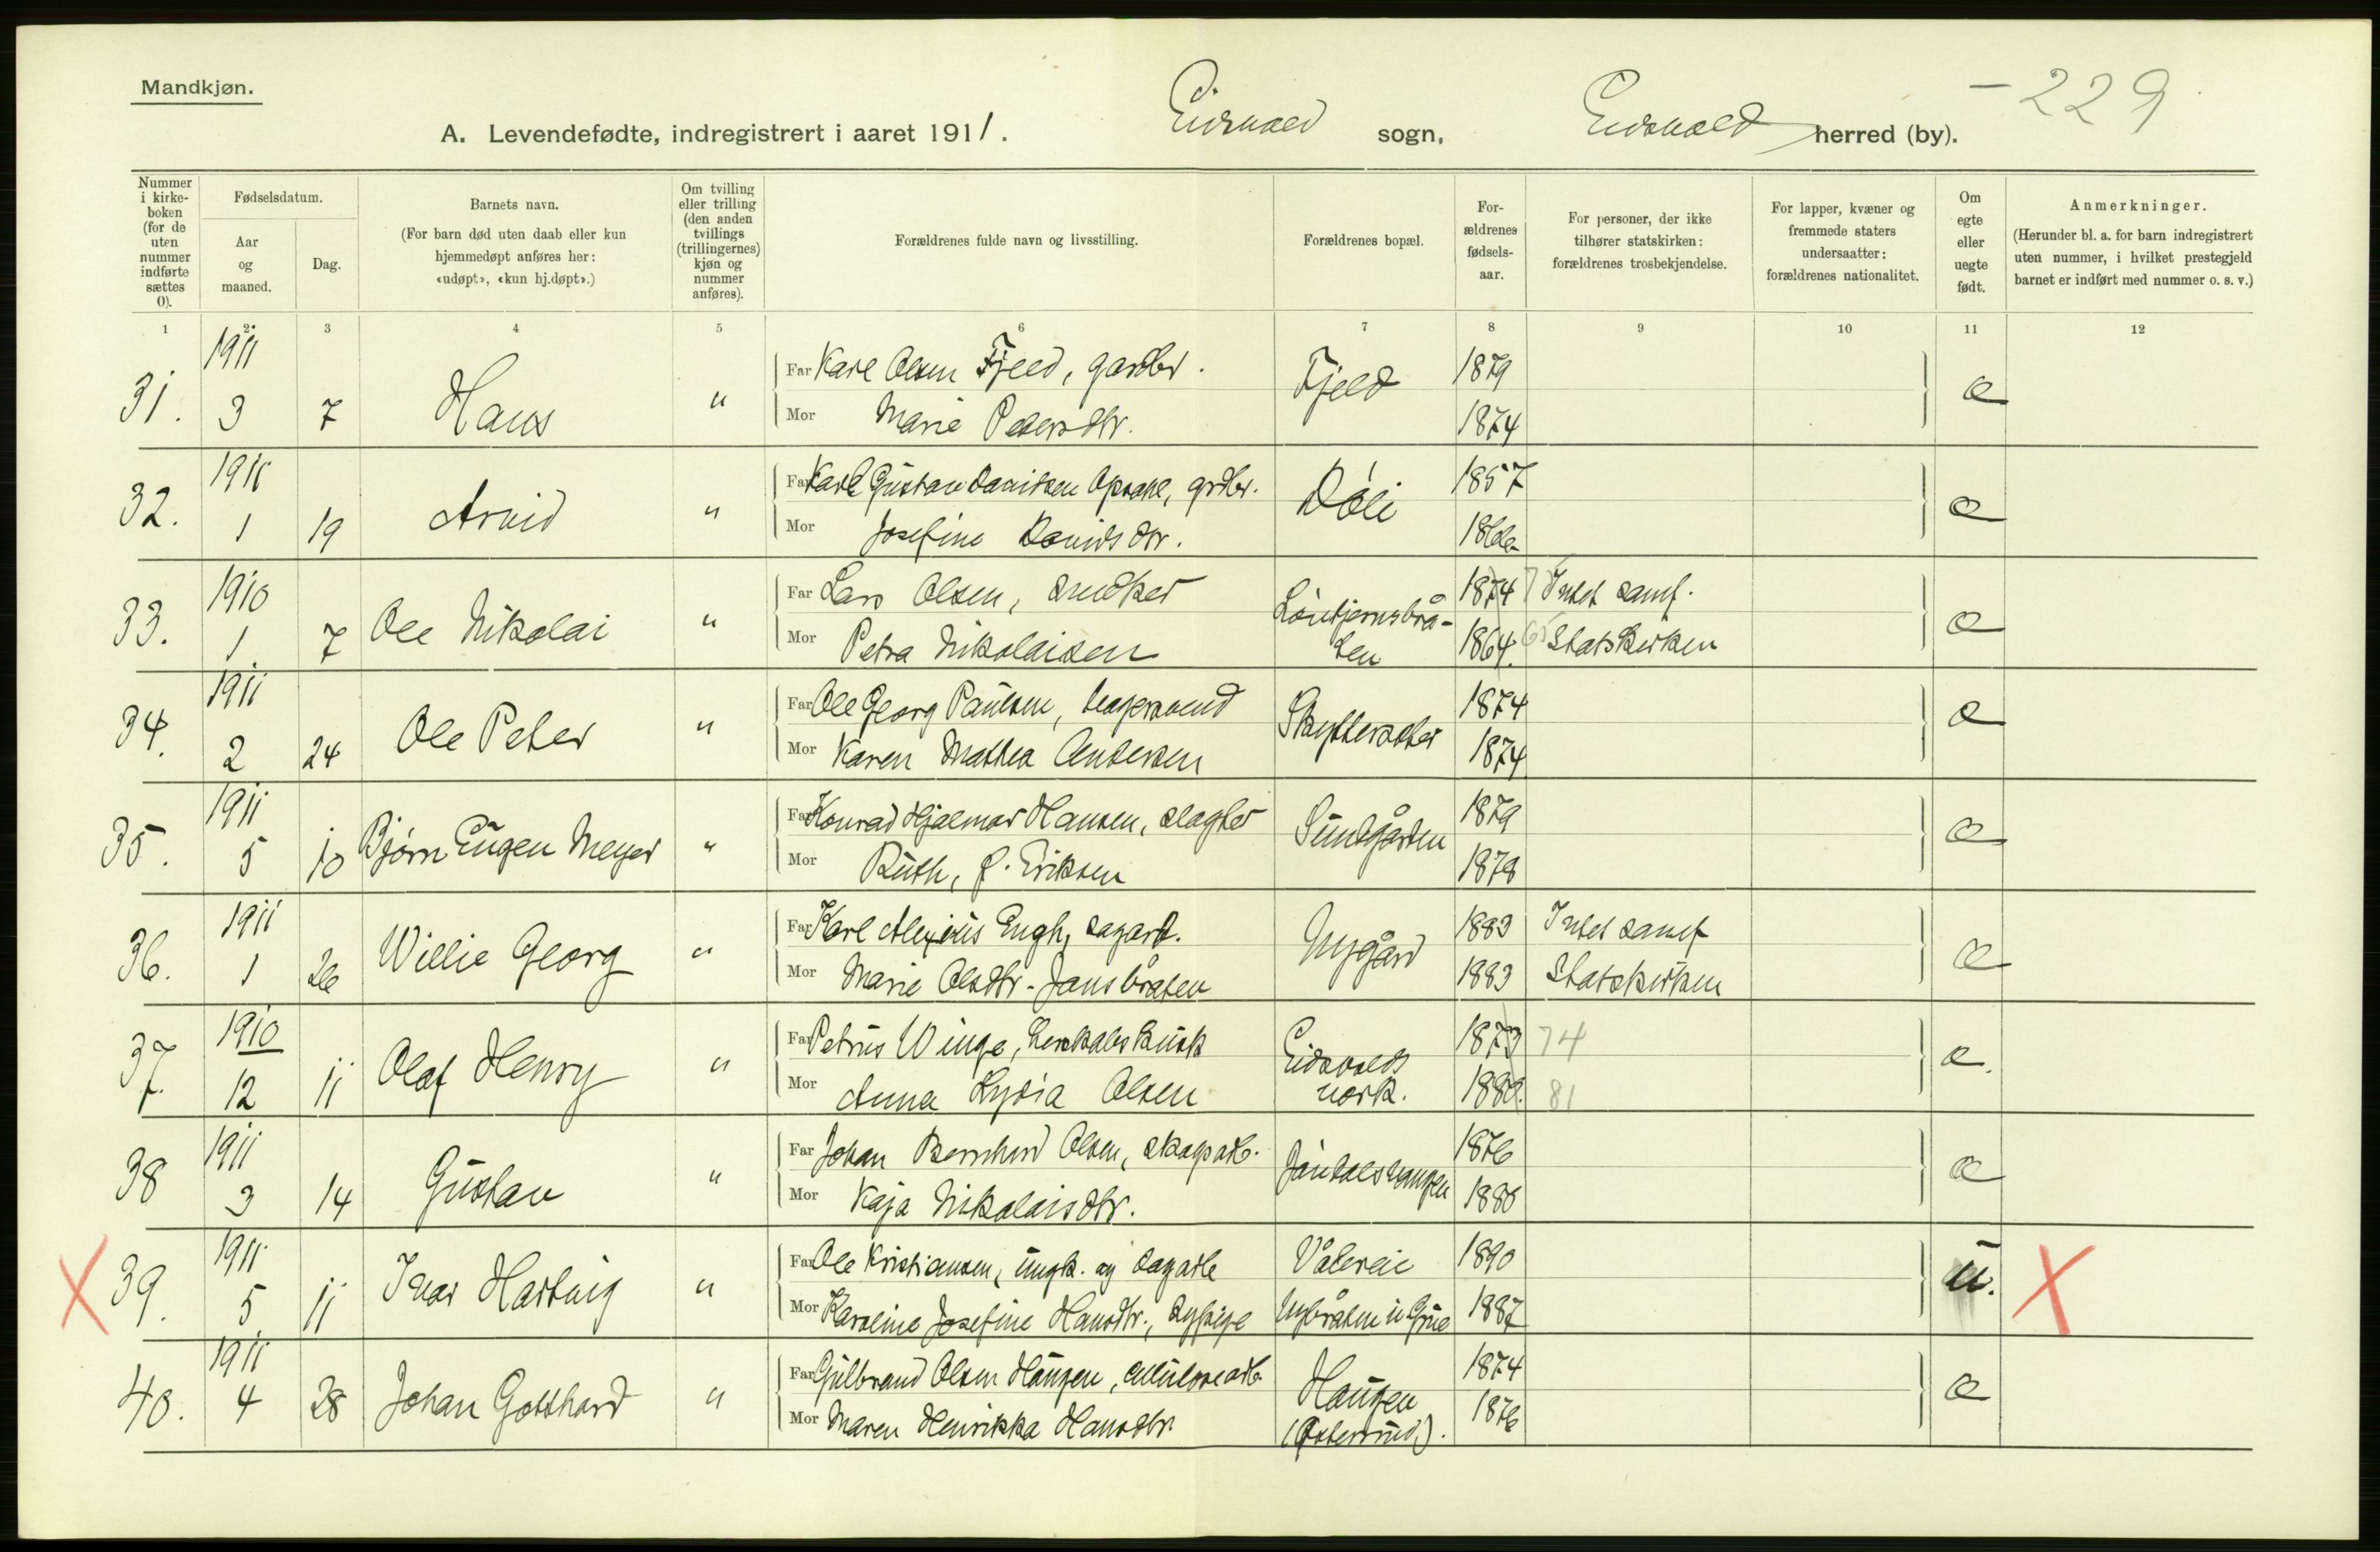 Mandkjøn.
- 229
A. Levendefødte, indregistrert i aaret 1911. Eidsvold sogn, Eidsvold herred (by).
Nummer i kirke-boken (for de uten nummer indførte sættes 0).
Fødselsdatum.
Aar og maaned.
Dag.
Barnets navn.
(For barn død uten daab eller kun hjemmedøpt anføres her: «udøpt», «kun hj.døpt».)
Om tvilling eller trilling (den anden tvillings (trillingernes) kjøn og nummer anføres).
Forældrenes fulde navn og livsstilling.
Forældrenes bopæl.
For-ældrenes fødsels-aar.
For personer, der ikke tilhører statskirken: forældrenes trosbekjendelse.
For lapper, kvæner og fremmede staters undersaatter: forældrenes nationalitet.
Om egte eller uegte født.
Anmerkninger.
(Herunder bl. a. for barn indregistrert uten nummer, i hvilket prestegjeld barnet er indført med nummer o. s. v.)
1 2. 3 4 5 6 7 8 9 10 11 12
31. 1911 3 7 Hans " Far Karl Olsen Fjeld, gardbr. Fjeld 1879 e
Mor Marie Pedersdtr. 1874
32. 1911 1 19 Arvid " Far Karl Gustav Davidsen, grdbr. Døli 1857 e
Mor Josefine Davidsdtr.
33. 1910 1 7 Ole Nikolai " Far Lars Olsen, snedker Løntjernsbrå- 1874 Intet samf. e
Mor Petra Nikolaisen ten 1864. 65 Statskirken
34. 1911 2 24 Ole Peter " Far Ole Georg Paulsen, Skyttersæter 1874 e
Mor Karen Mathea Andersen 1874
35. 1911 5 10 Bjørn Eugen Meyer " Far Konrad Hjalmar Hansen, slagter Sundgården 1879 e
Mor Ruth, f. Eriksen 1879
36. 1911 1 26 Willie Georg " Far Karl Alexius Engh, sagarb. Nygård 1883 Intet samf e
Mor Marie Olsdtr. Jansbråten 1883 Statskirken
37. 1910 12 11 Olaf Henry " Far Petrus Winge, herskabskusk Eidsvolds 1873 74 e.
Mor Anna Lydia Olsen verk. 1880. 81
38 1911 3 14 Gustav " Far Johan Bernhard Olsen, skogsarb. Jøndalsvangen 1876 e
Mor Kaja Nikolaisdtr. 1880
X 39. 1911 5 11 Ivar Hartvig " Far Ole Kristiansen, ungk. og dagarb Vålereie 1890 u. X
Mor Karoline Josefine Hansdtr., sypige Nybråten i Grue 1887
40. 1911 4 28 Johan Gotthard " Far Gulbrand Olsen Haugen, cellulosearb. Haugen 1874 e
Mor Maren Henrikka Hansdtr. (Østerrud.). 1876